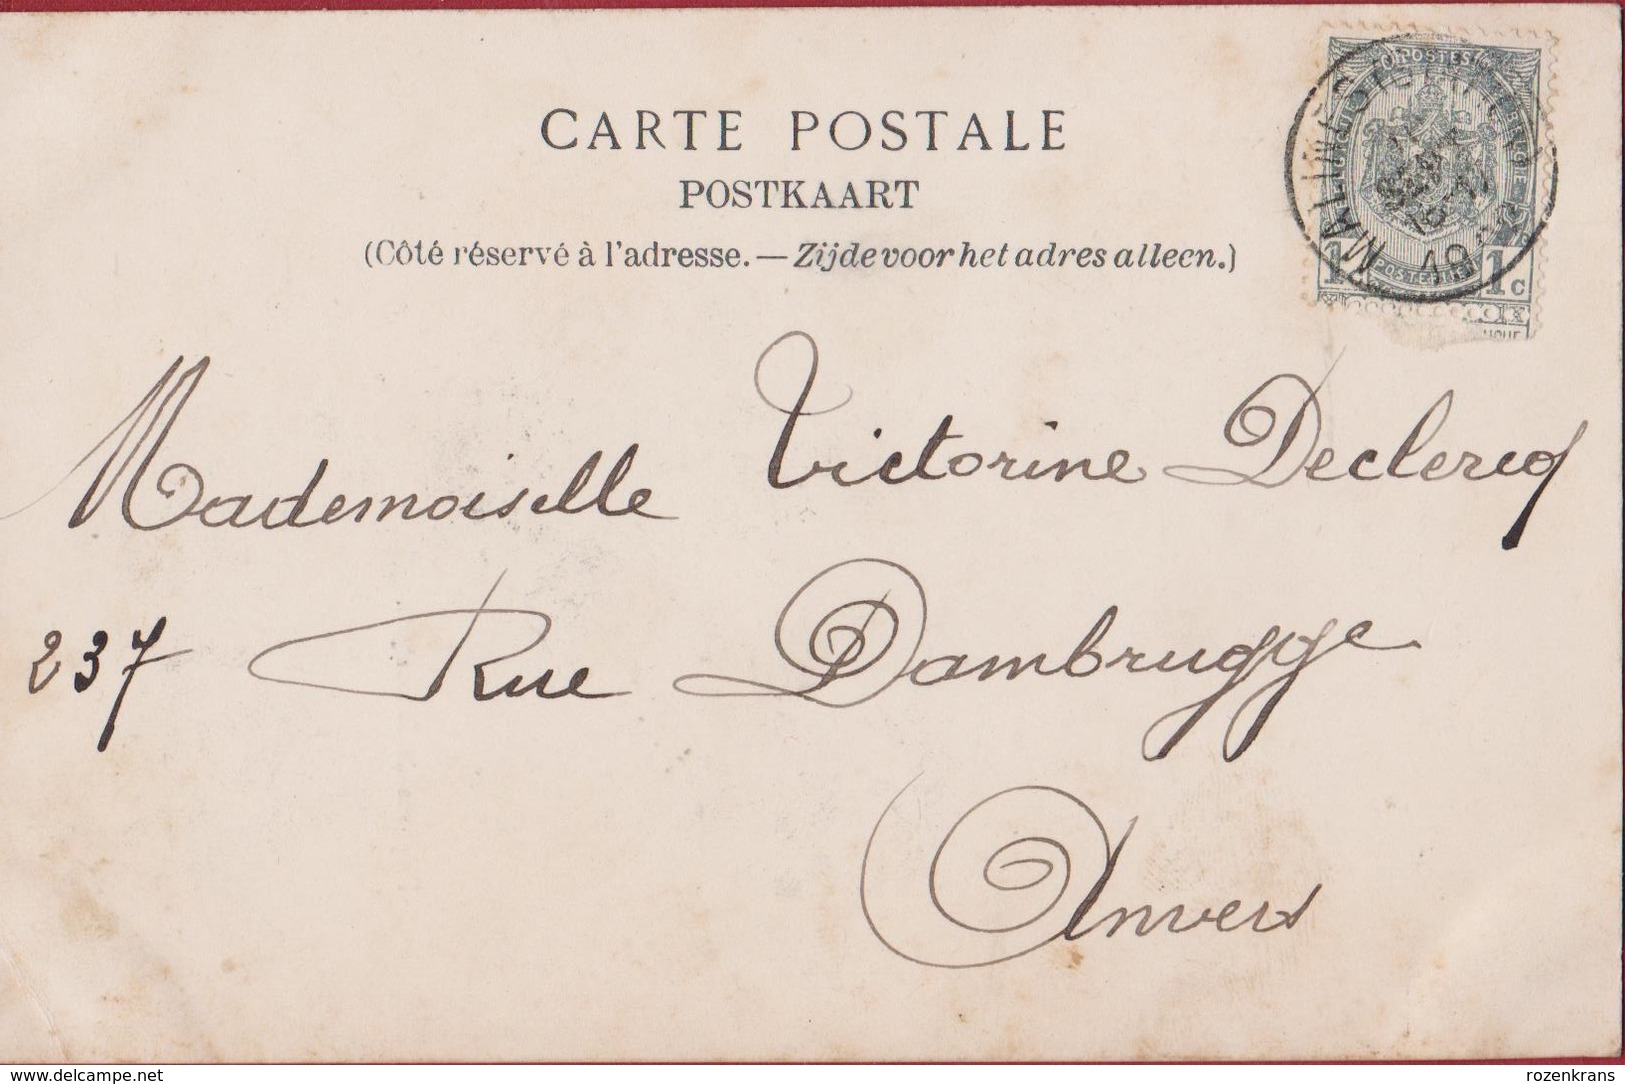 CARTE POSTALE
POSTKAART
(Côté réservé à l'adresse. — Zijde voor het adres alleen.)
POSTES
BELGIQUE
MALINES (STATION)
1 1c
Mademoiselle Victorine Declercq
237 Rue Dambrugge
Anvers
www.delcampe.net
rozenkrans